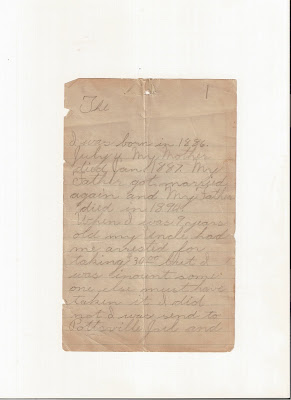 The
1
I was born in 1886.
July 4 My Mother
died Jan 1887. My
Father got married
again and My Father
died in 1894
When I was 9 years
old my Uncle had
me arrested for
taking But I
was inocent some
one else must have
taken it I did
not I was send to
Pottsville Jail and